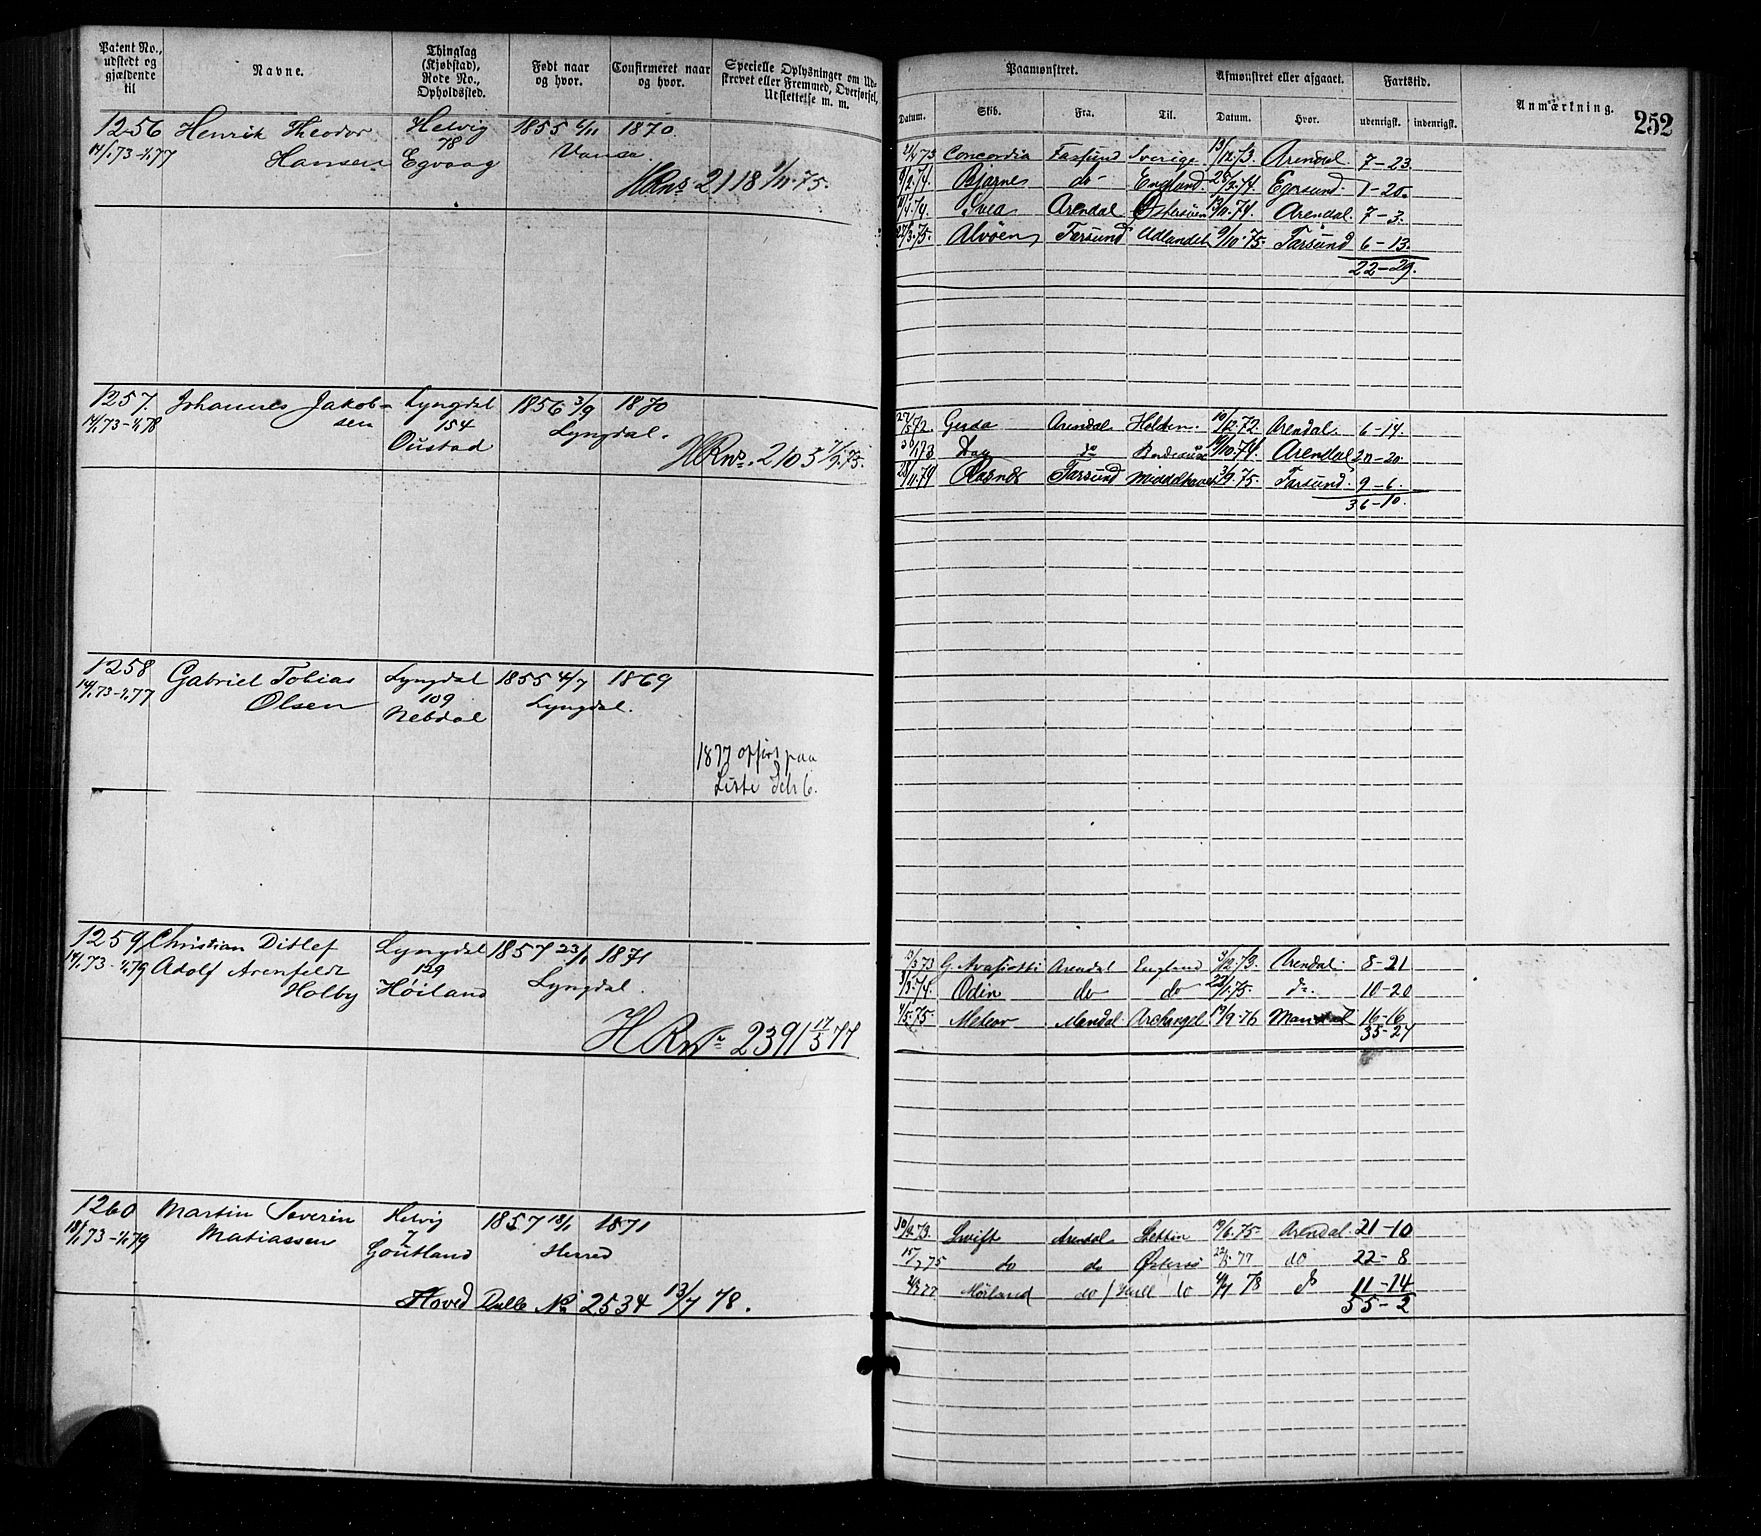 Patent No., udstedt og gjældende til
Navne.
Thinglag (Kjøbstad), Rode No., Opholdssted.
Født naar og hvor.
Confirmeret naar og hvor.
Specielle Oplysninger om Udskrevet eller Fremmed, Overførsel, Udslettelse m. m.
Paamønstret.
Datum. Skib. Fra. Til.
Afmønstret eller afgaaet.
Datum. Hvor.
Fartstid.
udenrigsk. indenrigsk.
Anmærkning.
252
1256 Henrik Theodor Helvig 1855 6/11 1870.
14/1 73-1/1 77 Hansen 78 Vanse.
Egvaag
HRno 2118 1/11.75.
73 Concordia Farsund Sverige 13/12.73. Arendal 7-23
9/2.74. Bjarnes do England 28/3.74. Egersund 1-20.
Svea Arendal Østersøen 13/11.74. Arendal. 7-3.
27/3.75. Alvøen Farsund Udlandet 9/10.75. Farsund 6-13.
22-29.
1257. Johannes Jakob- Lyngdal 1856 3/9 1870
14/1 73-1/1 78 sen 154 Lyngdal.
Oustad
HRno. 2105 7/9.75.
27/5 72. Gerda Arendal Holden. 10/12.72. Arendal. 6-14.
73 Dag do 19/10.74. Arendal 20-20.
28/11.74 Farsund Middelhavet 3/9.75. Farsund. 9-6.
36-10.
1258 Gabriel Tobias Lyngdal 1855 4/7 1869
14/1 73-1/1 77 Olsen 109 Lyngdal.
Nebdal
1877 opført paa
Liste
1259 Christian Ditlef Lyngdal 1857 23/1 1871
14/1 73-1/1 79 Adolf Arenfeldt 129 Lyngdal.
Holby Høiland
HRno 2391 17/5 77
13/3 73 Arendal England 3/12.73. Arendal. 8-21
3/3.74. Odin do do 22/1.75. do. 10-20
4/5.75. Meteor Mandal Archangel 19/9.76 Mandal 16-16
35-27
1260 Martin Severin Helvig 1857 18/1 1871
18/1 73-1/1 79 Matiassen 7 Herred
Goutland
Hoved Rulle No 2534 13/7 78.
Swift Arendal Stettin 19/6.75. Arendal 21-10
15/7 75 do do Østersø 22/5.77 do 22-8
Høiland do / Hull do 4/7 78 do 11-14
55-2